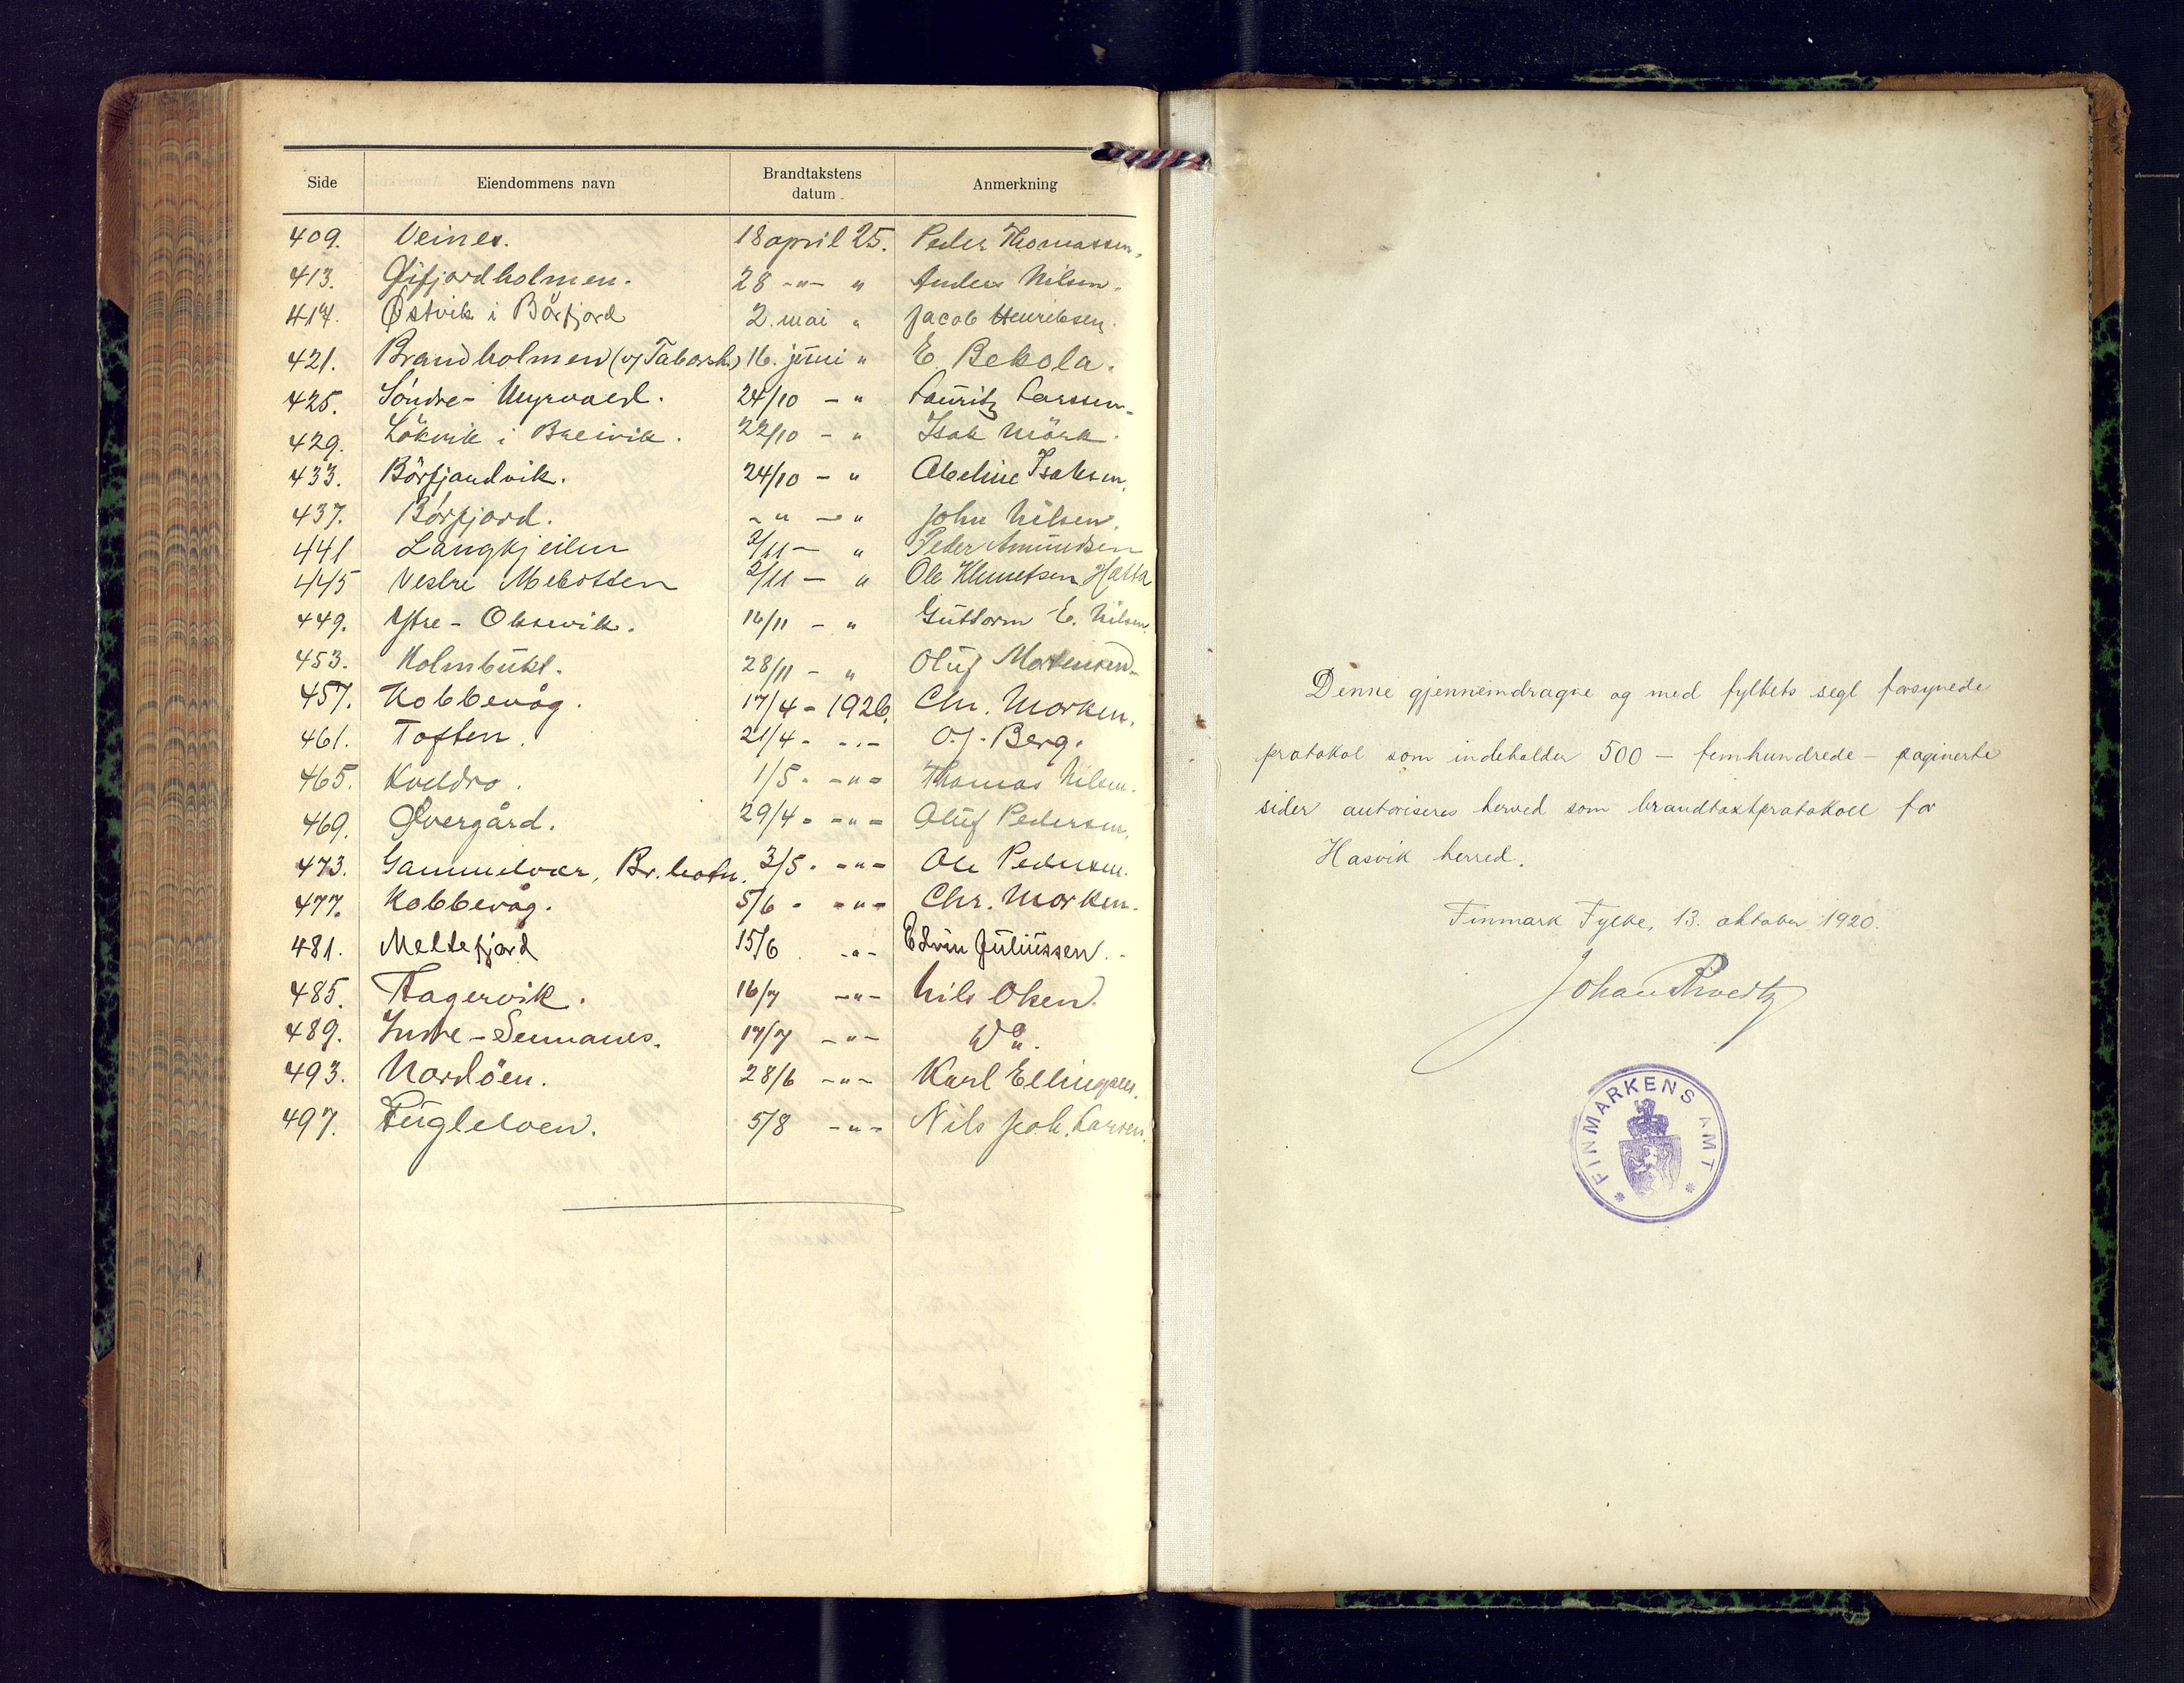 Side Eiendommens navn Brandtakstens datum Anmerkning
409. Veines. 18 april 25. Peder Thomassen.
413. Øifjordholmen. 28 -"- " Anders Nilsen.
417. Østvik i Börfjord 2. mai " Jacob Henriksen.
421. Brandholmen (v/ Taborsk.) 16. juni " E. Bekola.
425. Söndre- 24/10 - " Lauritz Larssen.
429. Lökvik i Breivik. 22/10 - " Isak Mörk.
433. Börfjordvik. 24/10 - " Abeline Isaksen.
437. Börfjord. -"- - " John Nilsen.
441 Langkjeilen 2/11 - " Peder Amundsen
445 Vestre Mebotten 2/11 - " Ole Klemetsen Hætta
449. Ytre- Oksevik. 16/11 - " Guttorm E. Nilsen.
453. Holmbukt. 28/11 - " Oluf Mortensen.
457. Kobbevåg. 17/4 - 1926. Chr. Morken.
461. Toften. 21/4 - -"- O. J. Berg.
465. Kveldro. 1/5 - -"- Thomas Nilsen.
469. Øvergård. 29/4 - -"- Oluf Pedersen.
473. Gammelvær, Br.botn. 3/5 - -"- Ole Pedersen.
477. Kobbevåg. 5/6 - -"- Chr. Morken.
481. Meltefjord 15/6 -"- Edvin Juliussen.
485. Hagervik. 16/7 -"- Nils Olsen.
489. Indre- 17/7 -"- Do.
493. Nordöen. 28/6 -"- Karl Ellingsen.
497. Fugleloen. 5/8 -"- Nils Joh. Larsen.
Denne gjennemdragne og med fylkets segl forsynede
protokol som indeholder 500 - femhundrede - paginerte
sider autoriseres herved som brandtakstprotokoll for
Hasvik herred.
Finmark Fylke, 13. oktober 1920.
Johan Rivertz
FINMARKENS AMT